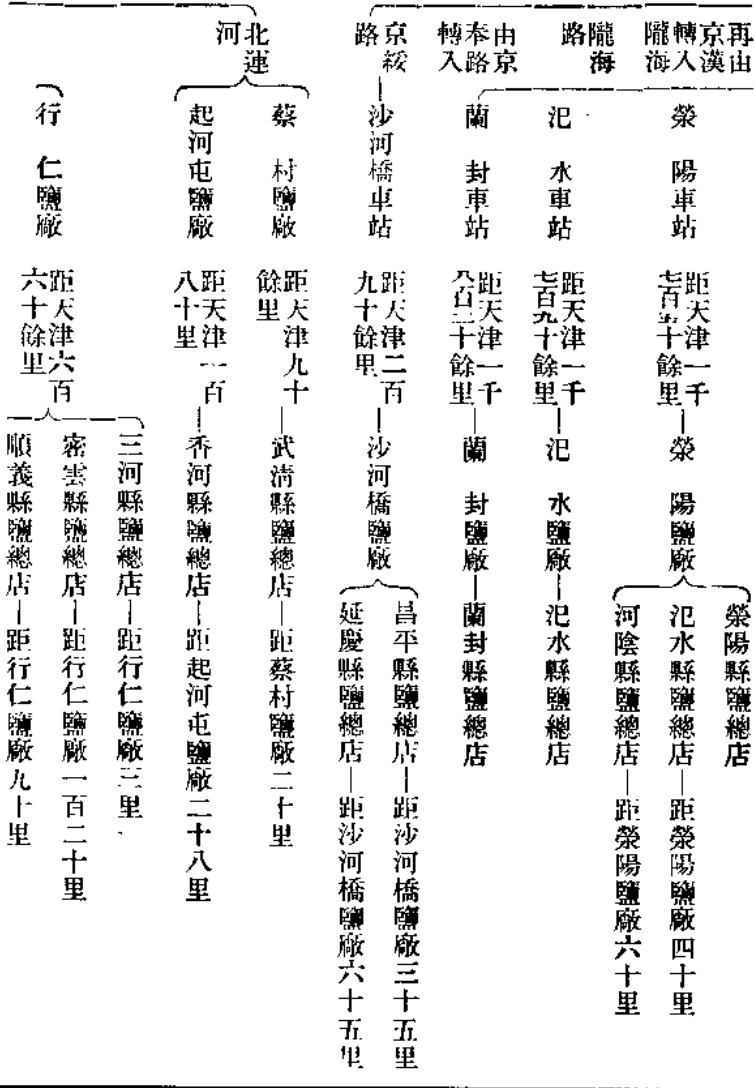 再由
京漢
轉入
隴海
榮陽車站
距天津一千
七百十餘里
榮陽鹽廠
榮陽縣鹽總店
汜水縣鹽總店 距榮陽鹽廠四十里
河陰縣鹽總店 距榮陽鹽廠六十里
隴海
路
汜水車站
距天津一千
七百九十餘里
汜水鹽廠
汜水縣鹽總店
由京
奉路
轉入
蘭封車站
距天津一千
百十餘里
蘭封鹽廠
蘭封縣鹽總店
京綏
路
沙河橋車站
距天津二百
九十餘里
沙河橋鹽廠
昌平縣鹽總店 距沙河橋鹽廠三十五里
延慶縣鹽總店 距沙河橋鹽廠六十五里
北運
河
蔡村鹽廠
距天津九十
餘里
武清縣鹽總店 距蔡村鹽廠二十里
起河屯鹽廠
距天津一百
八十里
香河縣鹽總店 距起河屯鹽廠二十八里
行仁鹽廠
距天津六百
六十餘里
三河縣鹽總店 距行仁鹽廠三里
密雲縣鹽總店 距行仁鹽廠一百二十里
順義縣鹽總店 距行仁鹽廠九十里